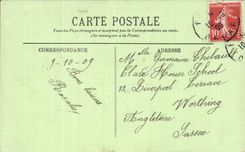 CARTE POSTALE
Tous les Pays étrangers n'acceptent pas la Correspondance au recto.
(Se renseigner à la Poste)
CORRESPONDANCE
ADRESSE
9-10-09
Bons baisers
Mlle Germaine
House School
12 Liverpool Terrace
Worthing
Angleterre
Sussex
10